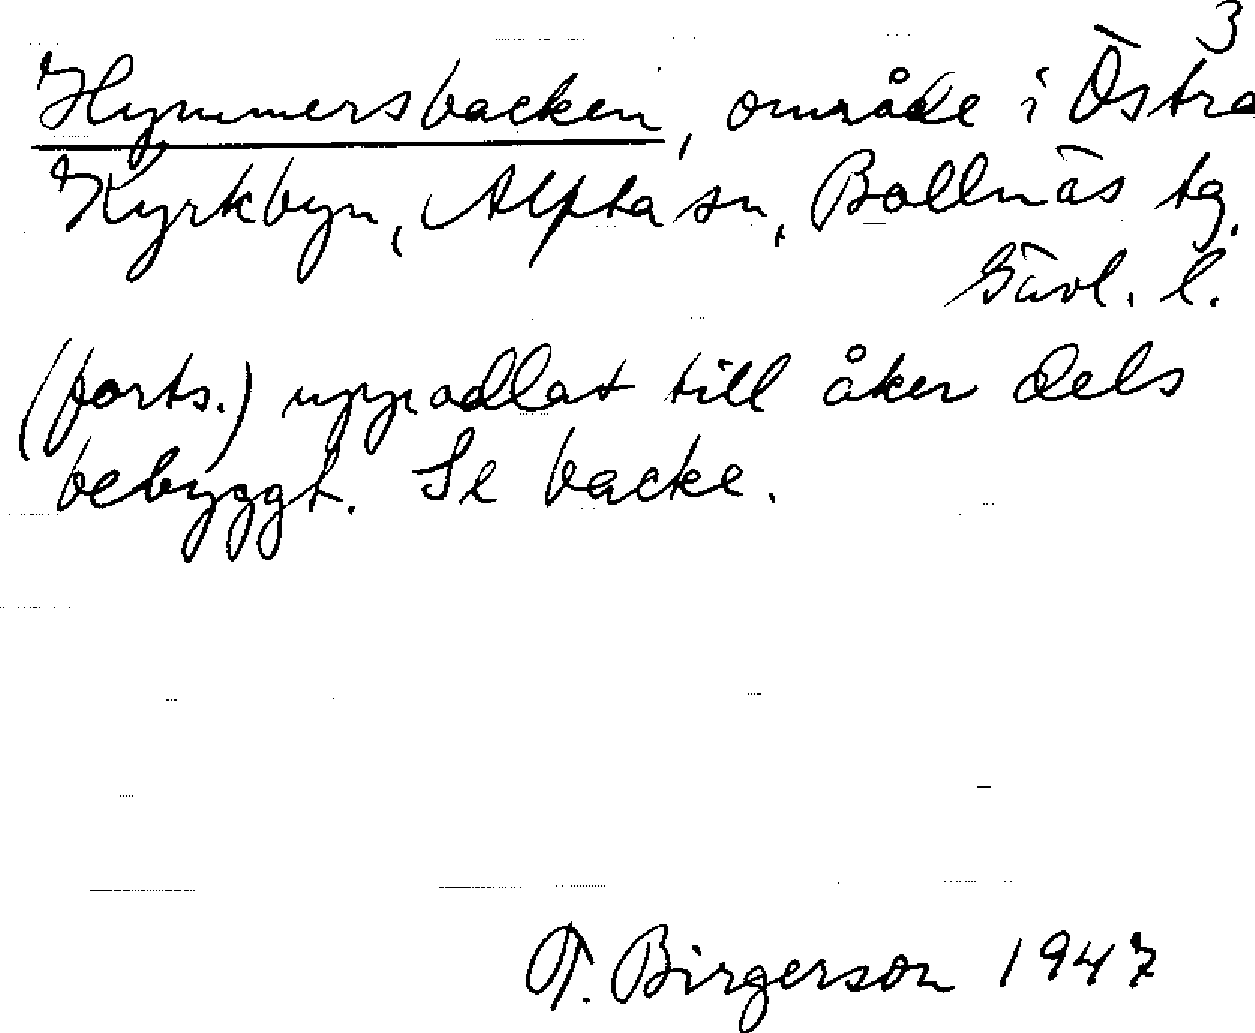 3
Hymmersbacken, område i Östra
Kyrkbyn, Alfta sn, Bollnäs tg.
Gävl. l.
(forts.) uppodlat till åker dels
bebyggt. Se backe.
T. Birgerson 1947